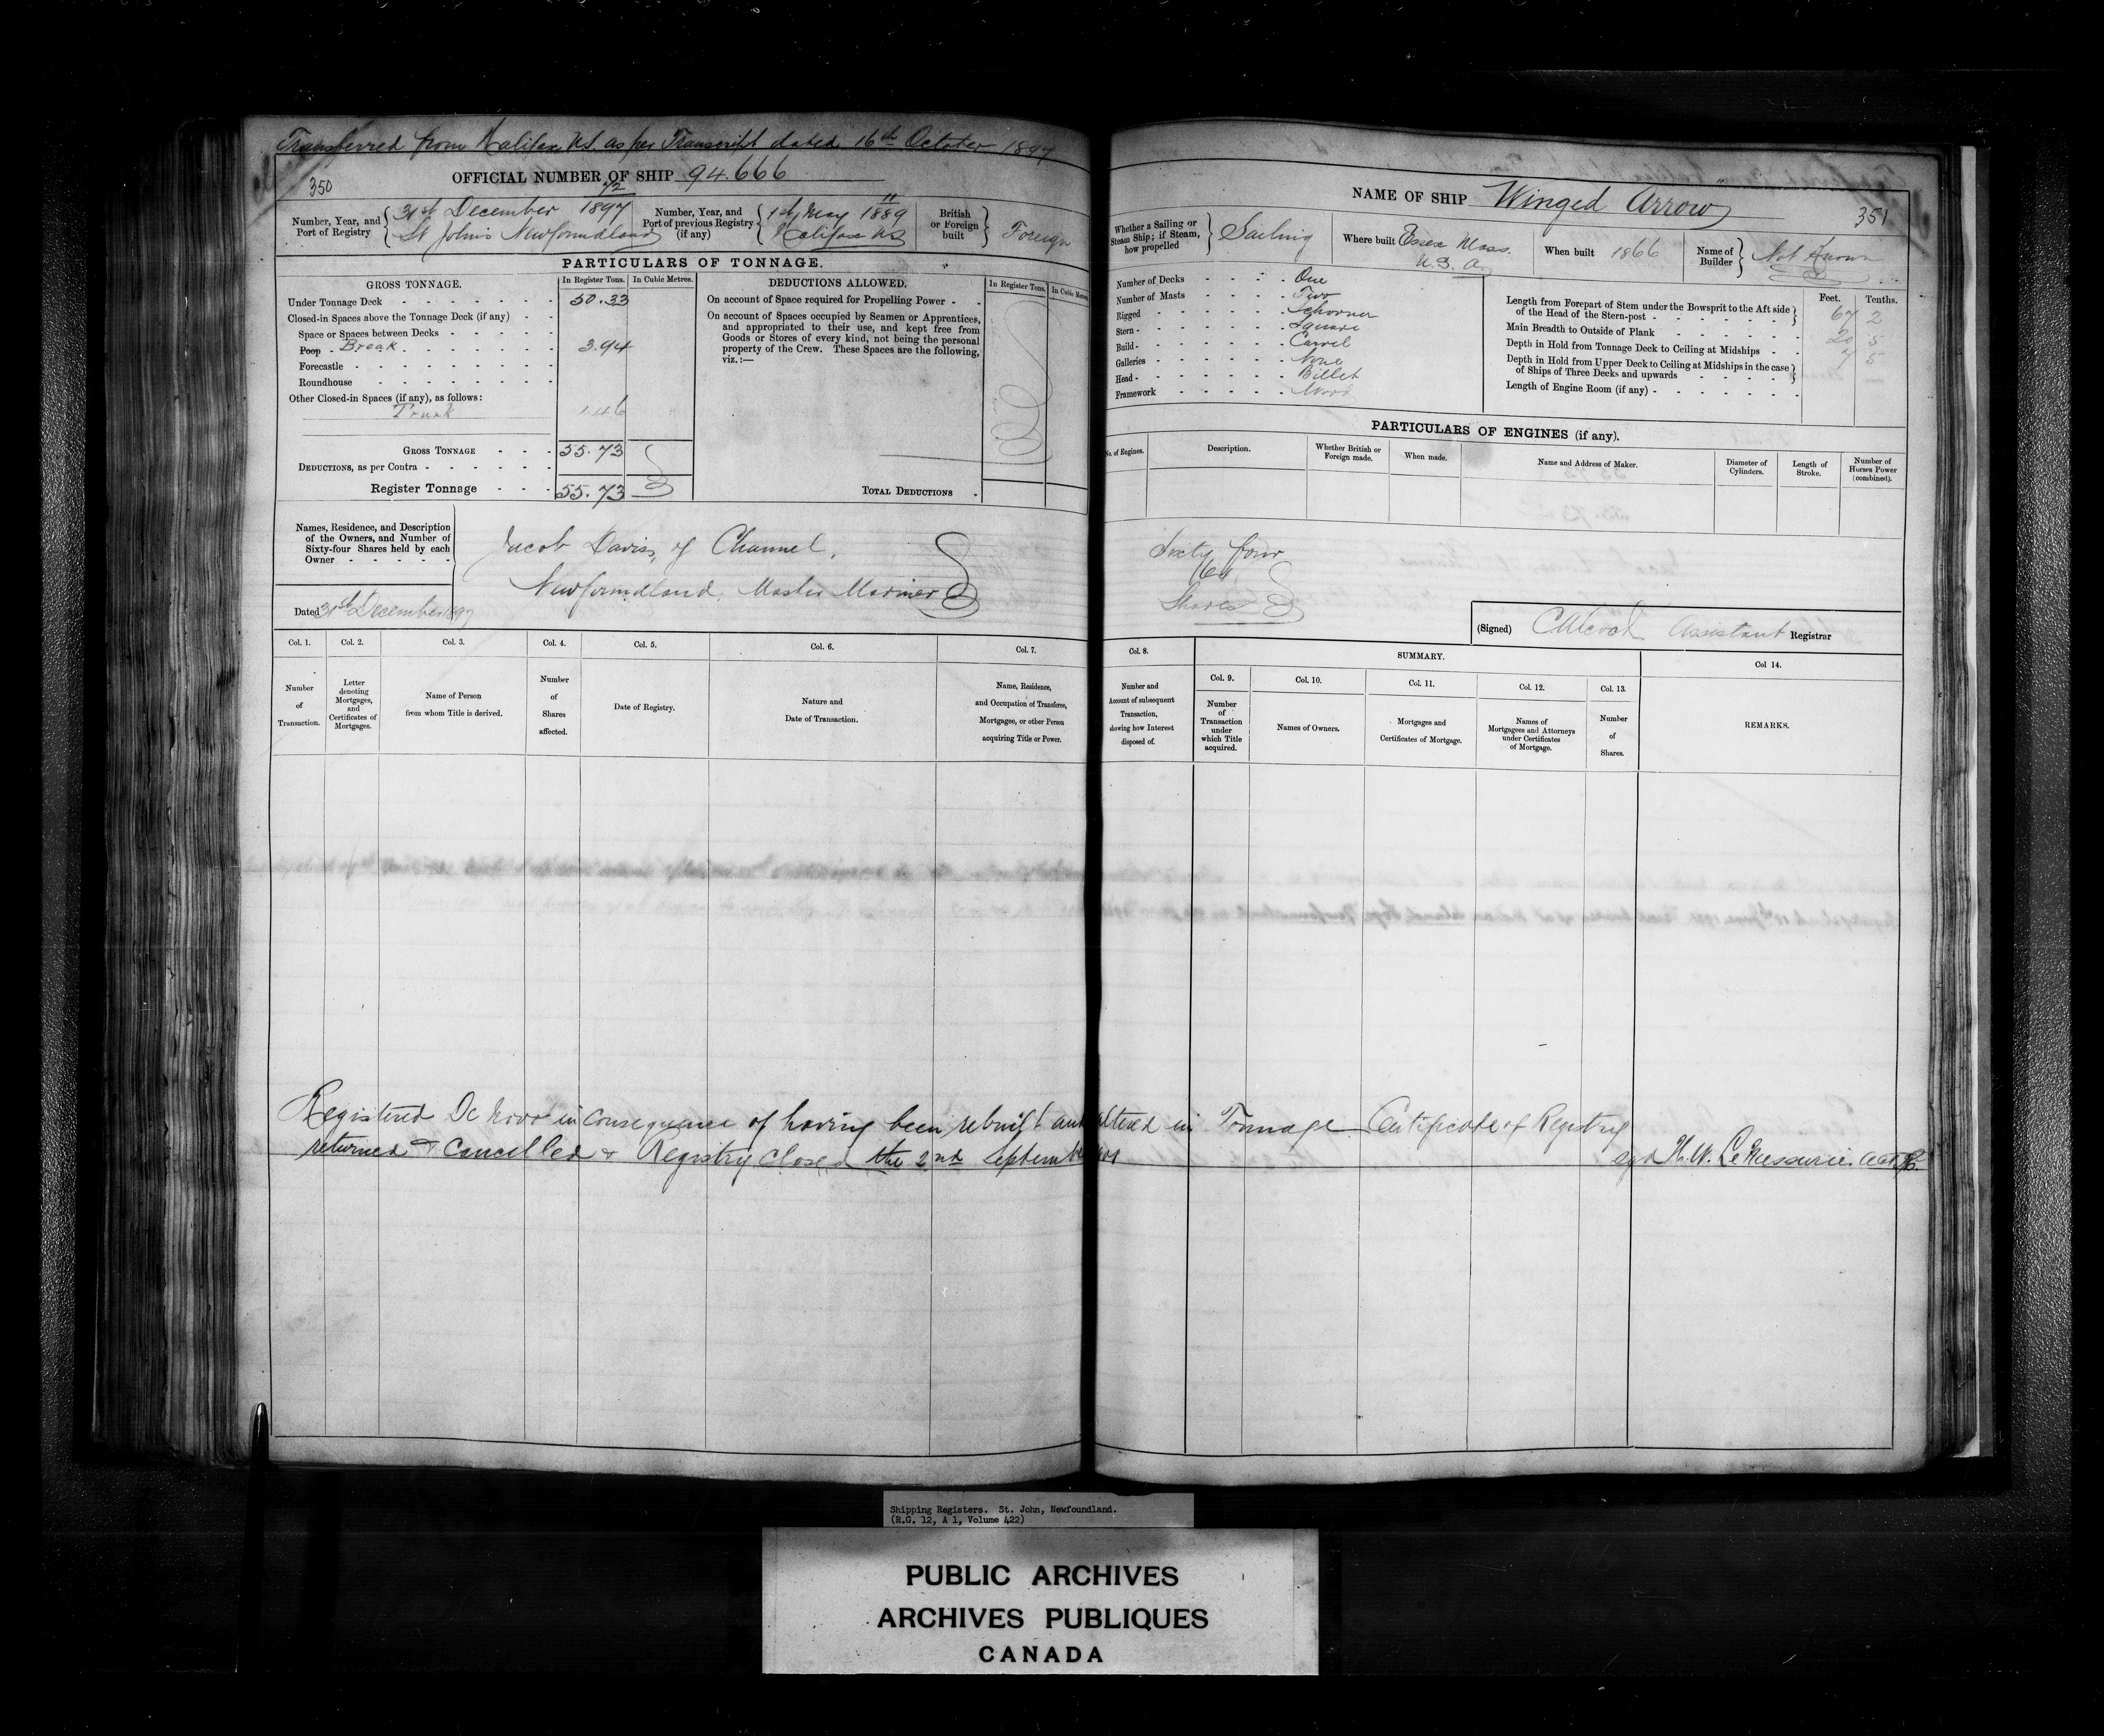 Transferred from Halifax N.S. as per Transcript dated 16th October 1897
350
OFFICIAL NUMBER OF SHIP 94.666
Number, Year, and Port of Registry
72
31st December 1897
St John's Newfoundland
Number, Year, and Port of previous Registry (if any)
11
1st May 1889
Halifax NS
British or Foreign built
Foreign
PARTICULARS OF TONNAGE.
GROSS TONNAGE.
In Register Tons.
In Cubic Metres.
Under Tonnage Deck 50.33
Closed-in Spaces above the Tonnage Deck (if any)
Space or Spaces between Decks
Poop Break 3.94
Forecastle
Roundhouse
Other Closed-in Spaces (if any), as follows:
Trunk 1.46
GROSS TONNAGE 55.73
DEDUCTIONS, as per Contra
Register Tonnage 55.73
DEDUCTIONS ALLOWED.
In Register Tons.
In Cubic Metres
On account of Space required for Propelling Power
On account of Spaces occupied by Seamen or Apprentices,
and appropriated to their use, and kept free from
Goods or Stores of every kind, not being the personal
property of the Crew. These Spaces are the following,
viz.:—
TOTAL DEDUCTIONS
Names, Residence, and Description
of the Owners, and Number of
Sixty-four Shares held by each
Owner
Jacob Davis, of Channel,
Newfoundland. Master Mariner
Dated 31st December 1897
Col. 1.
Number
of
Transaction.
Col. 2.
Letter
denoting
Mortgages,
and
Certificates of
Mortgages.
Col. 3.
Name of Person
from whom Title is derived.
Col. 4.
Number
of
Shares
affected.
Col. 5.
Date of Registry.
Col. 6.
Nature and
Date of Transaction.
Col. 7.
Name, Residence,
and Occupation of Transferee,
Mortgagee, or other Person
acquiring Title or Power.
NAME OF SHIP Winged Arrow
351
Whether a Sailing or
Steam Ship; if Steam,
how propelled
Sailing
Where built Essex Mass.
U.S.A.
When built 1866
Name of Builder
Not Known
Number of Decks One
Number of Masts Two
Rigged Schooner
Stern Square
Build Carvel
Galleries None
Head Billet
Framework Wood
Feet. Tenths.
Length from Forepart of Stem under the Bowsprit to the Aft side
of the Head of the Stern-post 67 2
Main Breadth to Outside of Plank 20 5
Depth in Hold from Tonnage Deck to Ceiling at Midships 7 5
Depth in Hold from Upper Deck to Ceiling at Midships in the case
of Ships of Three Decks and upwards
Length of Engine Room (if any)
PARTICULARS OF ENGINES (if any).
No. of Engines.
Description.
Whether British or
Foreign made.
When made.
Name and Address of Maker.
Diameter of
Cylinders.
Length of
Stroke.
Number of
Horses Power
(combined).
Sixty four
64
Shares
(Signed) Assistant Registrar
Col. 8.
Number and
Account of subsequent
Transaction,
showing how Interest
disposed of.
SUMMARY.
Col. 9.
Number
of
Transaction
under
which Title
acquired.
Col. 10.
Names of Owners.
Col. 11.
Mortgages and
Certificates of Mortgage.
Col. 12.
Names of
Mortgagees and Attorneys
under Certificates
of Mortgage.
Col. 13.
Number
of
Shares.
Col 14.
REMARKS.
Registered De Novo in consequence of having been rebuilt and altered in Tonnage Certificate of Registry
returned & Cancelled & Registry closed the 2nd September 1901
sgd H.W. LeMessurier.
Shipping Registers. St. John, Newfoundland.
(R.G. 12, A 1, Volume 422)
PUBLIC ARCHIVES
ARCHIVES PUBLIQUES
CANADA